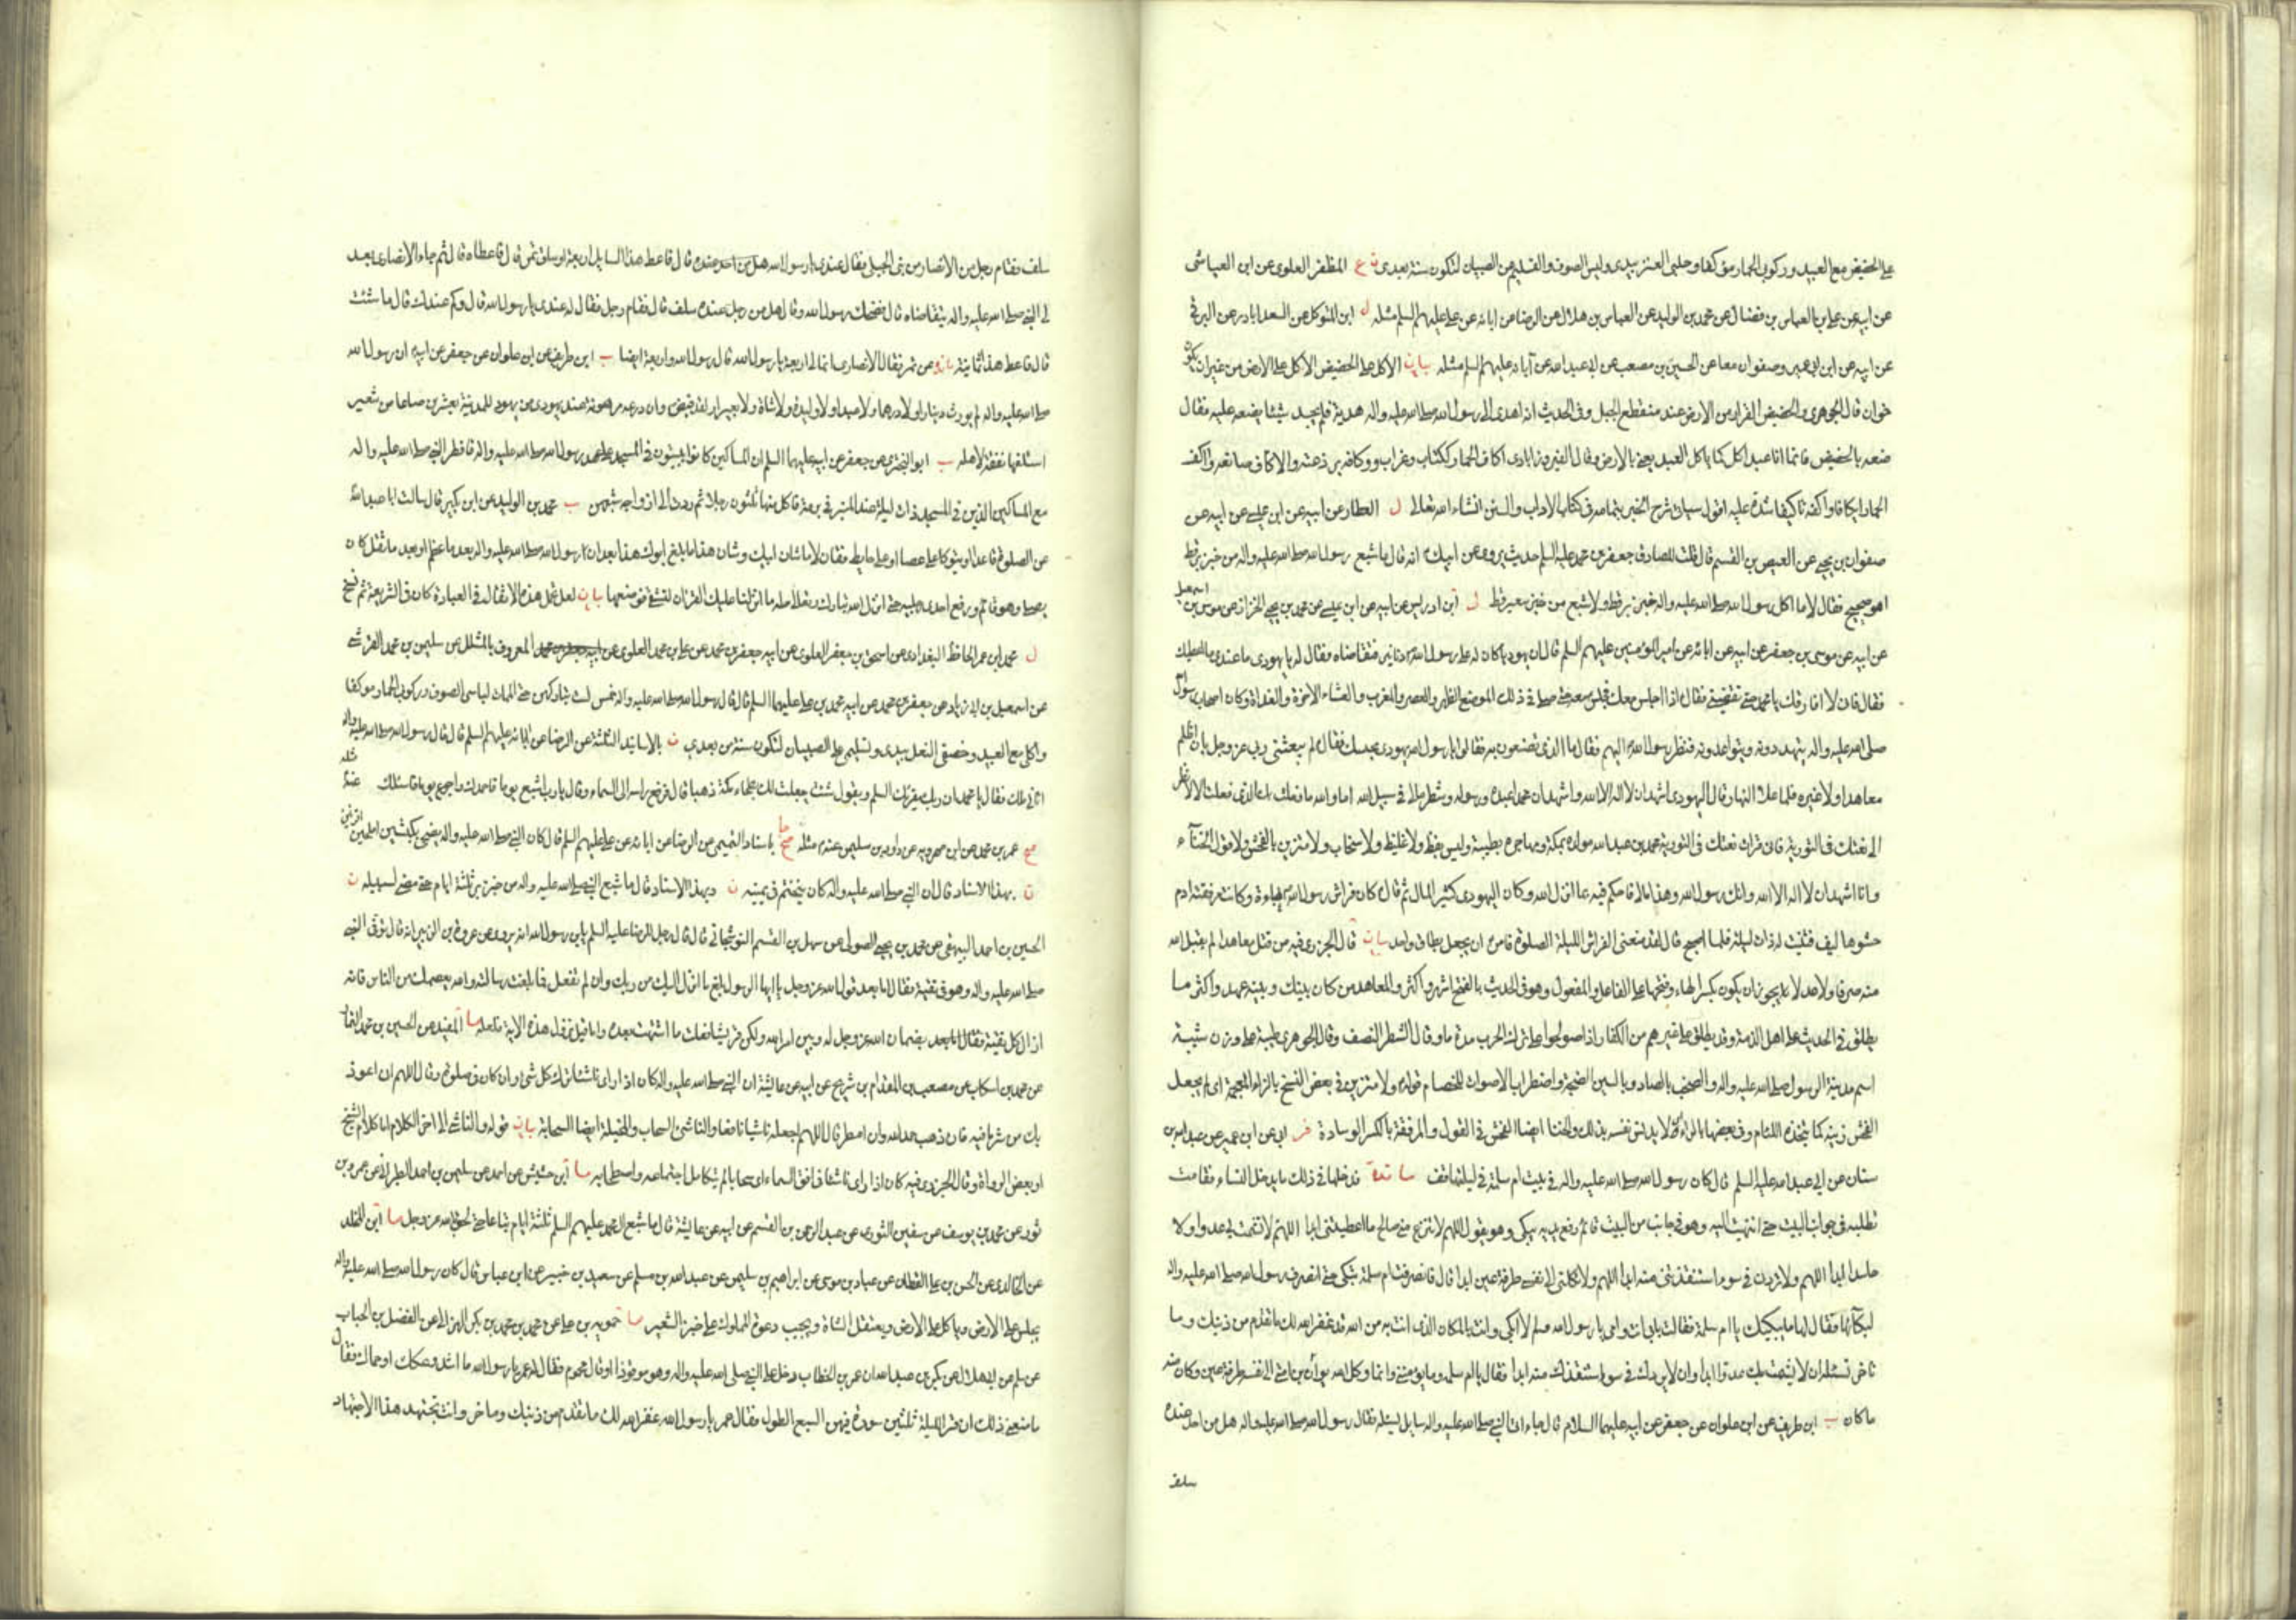 على الحضيض مع العبيد وركوبي الحمار مؤكفا وحلبي العنز بيدي ولبس الصوف والتسليم على الصبيان لتكون سنة بعدي ن ع المظفر العلوي عن ابن العياشي
عن ابيه عن علي بن العباس بن فضال عن محمد بن الوليد عن العباس بن هلال عن الرضا عن ابائه عن علي عليهم السلم مثله ل ابن المتوكل عن السعدابادي عن البرقي
عن ابيه عن ابن ابي عمير وصفوان معا عن الحسين بن مصعب عن ابي عبد الله عن آبائه عليهم السلم مثله بيان الاكل على الحضيض الاكل على الارض من غير ان يكون
خوان قال الجوهري والحضيض القرار من الارض عند منقطع الجبل وفى الحديث انه اهدي الى رسول الله صلى الله عليه واله هدية فلم يجد شيئا يضعه عليه فقال
ضعه بالحضيض فانما انا عبد اكل كما ياكل العبد يعني بالارض وقال الفيروزابادى اكاف الحمار ككتاب وغراب ووكافه برذعته والاكاف صانعه واكف
الحمار ايكافا واكفه تاكيفا شده عليه اقول سياتى شرح الخبر بتمامه فى كتاب الاداب والسنن انشاء الله تعالى ل العطار عن ابيه عن ابن عيسى عن ابيه عن
صفوان بن يحيى عن العيص بن القسم قال قلت للصادق جعفر بن محمد عليه السلم حديث يروى عن ابيك انه قال ما شبع رسول الله صلى الله عليه واله من خبز بر قط
اهو صحيح فقال لا ما اكل رسول الله صلى الله عليه واله خبز بر قط ولا شبع من خبز شعير قط ل ابن ادريس عن ابيه عن ابن عيسى عن محمد بن يحيى الخزاز عن موسى بن اسمعيل
عن ابيه عن موسى بن جعفر عن ابيه عن ابائه عن امير المؤمنين عليهم السلم قال ان يهوديا كان له على رسول الله دنانير فتقاضاه فقال له يا يهودى ما عندى ما اعطيك
فقال فانى لا افارقك يا محمد حتى تقضيني فقال اذا اجلس معك فجلس معه حتى صلى فى ذلك الموضع الظهر والعصر والمغرب والعشاء الاخرة والغداة وكان اصحاب رسول الله
صلى الله عليه واله يتهددونه ويتواعدونه فنظر رسول الله اليهم فقال ما الذى تصنعون به فقالوا يا رسول الله يهودى يحبسك فقال لم يبعثنى ربي عز وجل بان اظلم
معاهدا ولا غيره فلما علا النهار قال اليهودى اشهد ان لا اله الا الله واشهد ان محمدا عبده ورسوله وشطر مالى فى سبيل الله اما والله ما فعلت بك الذى فعلت الا لانظر
الى نعتك فى التورية فانى قرات نعتك فى التورية محمد بن عبد الله مولده بمكة ومهاجره بطيبة وليس بفظ ولا غليظ ولا سخاب ولا متزين بالفحش ولا قول الخناء
وانا اشهد ان لا اله الا الله وانك رسول الله وهذا مالى فاحكم فيه بما انزل الله وكان اليهودى كثير المال ثم قال كان فراش رسول الله عباءة وكانت مرفقته ادم
حشوها ليف فثنيت له ذات ليلة فلما اصبح قال لقد منعنى الفراش الليلة الصلوة فامر ان يجعل بطاق واحد بيان قال الجزرى فيه من قتل معاهدا لم يقبل الله
منه صرفا ولا عدلا يجوز ان يكون بكسر الهاء وفتحها على الفاعل والمفعول وهو فى الحديث بالفتح اشهر واكثر والمعاهد من كان بينك وبينه عهد واكثر ما
يطلق فى الحديث على اهل الذمة وقد يطلق على غيرهم من الكفار اذا صولحوا على ترك الحرب مدة ما وقال الشطر النصف وقال الجوهرى طيبة على وزن شيبة
اسم مدينة الرسول صلى الله عليه واله والصخب بالصاد وبالسين الضجة واضطراب الاصوات للخصام قوله ولا متزين فى بعض النسخ بالزاء المعجمة اى لم يجعل
الفحش زينة كما يتخذه اللئام وفى بعضها بالراء اى لا يدنس نفسه بذلك والخنا ايضا الفحش فى القول والمرفقة بالكسر الوسادة فر ابى عن ابن ابى عمير عن عبد الله بن
سنان عن ابى عبد الله عليه السلم قال كان رسول الله صلى الله عليه واله فى بيت ام سلمة فى ليلتها فقدته فدخلها فى ذلك ما يدخل النساء فقامت
تطلبه فى جوانب البيت حتى انتهت اليه وهو فى جانب من البيت قائم رافع يديه يبكى وهو يقول اللهم لا تنزع منى صالح ما اعطيتنى ابدا اللهم لا تشمت بى عدوا ولا
حاسدا ابدا اللهم ولا تردنى فى سوء استنقذتنى منه ابدا اللهم ولا تكلنى الى نفسى طرفة عين ابدا قال فانصرفت ام سلمة تبكى حتى انصرف رسول الله صلى الله عليه واله
لبكائها فقال لها ما يبكيك يا ام سلمة فقالت بابى انت وامى يا رسول الله ولم لا ابكى وانت بالمكان الذى انت به من الله قد غفر الله لك ما تقدم من ذنبك وما
تاخر تسئله ان لا يشمت بك عدوا ابدا وان لا يردك فى سوء استنقذك منه ابدا فقال يا ام سلمة وما يؤمننى وانما وكل الله يونس بن متى الى نفسه طرفة عين وكان منه
ما كان ب ابن طريف عن ابن علوان عن جعفر عن ابيه عليهما السلام قال جاء الى النبى صلى الله عليه واله سايل يسئله فقال رسول الله صلى الله عليه واله هل من احد عنده
سلف
سلف فقام رجل من الانصار من بنى الحبلى فقال عندى يا رسول الله قال فاعط هذا السايل اربعة اوساق تمر قال فاعطاه قال ثم جاء الانصارى بعد
الى النبى صلى الله عليه واله يتقاضاه قال فضحك رسول الله وقال هل من رجل عنده سلف قال فقام رجل فقال له عندى يا رسول الله قال وكم عندك قال ما شئت
قال فاعط هذا ثمانية من تمر فقال الانصارى انما لى اربعة يا رسول الله قال رسول الله واربعة ايضا ب ابن طريف عن ابن علوان عن جعفر عن ابيه ان رسول الله
صلى الله عليه واله لم يورث دينارا ولا درهما ولا عبدا ولا وليدة ولا شاة ولا بعيرا ولقد قبض وان درعه مرهونة عند يهودى من يهود المدينة بعشرين صاعا من شعير
استلفها نفقة لاهله ب ابو البخترى عن جعفر عن ابيه عليهما السلم ان المساكين كانوا يبيتون فى المسجد على عهد رسول الله صلى الله عليه واله فافطر النبى صلى الله عليه واله
مع المساكين الذين فى المسجد ذات ليلة عند المنبر فى برمة فاكل منها ثلثون رجلا ثم ردت الى ازواجه شبعهن ب محمد بن الوليد عن ابن بكير قال سالت ابا عبد الله
عن الصلوة قاعدا او يتوكا على عصا او على حايط فقال لا ما شان ابيك وشان هذا ما بلغ ابوك هذا بعد ان رسول الله صلى الله عليه واله بعد ما عظم او بعد ما ثقل كان
يصلى وهو قائم ورفع احدى رجليه حتى انزل الله تبارك وتعالى طه ما انزلنا عليك القرآن لتشقى فوضعها بيان لعل مثل هذه الاثقال فى العبادة كان فى الشريعة ثم نسخ
ل محمد بن عمر الحافظ البغدادى عن اسحق بن جعفر العلوى عن ابيه جعفر بن محمد عن على بن محمد العلوى المعروف بالمشلل عن سليمن بن محمد القرشى
عن اسمعيل بن ابى زياد عن جعفر بن محمد عن ابيه محمد بن على عليهما السلم قال قال رسول الله صلى الله عليه واله خمس لست بتاركهن حتى الممات لباسى الصوف وركوبى الحمار موكفا
واكلى مع العبيد وخصفى النعل بيدى وتسليمى على الصبيان لتكون سنة من بعدى ن بالاسانيد الثلثة عن الرضا عن ابائه عليهم السلم قال قال رسول الله صلى الله عليه واله
اتانى ملك فقال يا محمد ان ربك يقرئك السلم ويقول ان شئت جعلت لك بطحاء مكة ذهبا قال فرفع راسه الى السماء وقال يا رب اشبع يوما فاحمدك واجوع يوما فاسئلك
صح عمر بن محمد عن ابن مهرويه عن داود بن سليمن عنه مثله بإسناد التميمى عن الرضا عن ابائه عن على عليهم السلم قال كان النبى صلى الله عليه واله يضحى بكبشين املحين اقرنين
ن بهذا الاسناد قال ان النبى صلى الله عليه واله كان يتختم فى يمينه ن وبهذا الاسناد قال ما شبع النبى صلى الله عليه واله من خبز بر ثلثة ايام حتى مضى لسبيله ن
الحسين بن احمد البيهقى عن محمد بن يحيى الصولى عن سهل بن القسم النوشجانى قال قال رجل للرضا عليه السلم يابن رسول الله انه يروى عن عروة بن الزبير انه قال توفى النبى
صلى الله عليه واله وهو فى تقية فقال اما بعد قول الله عز وجل يا ايها الرسول بلغ ما انزل اليك من ربك وان لم تفعل فما بلغت رسالته والله يعصمك من الناس فانه
ازال كل تقية بضمان الله عز وجل له وبين امر الله ولكن قريشا فعلت ما اشتهت بعده واما قبل نزول هذه الاية فلعله ما المفيد عن الحسين بن محمد التمار
عن محمد بن اسكاب عن مصعب بن المقدام بن شريح عن ابيه عن عائشة ان النبى صلى الله عليه واله كان اذا راى ناشئا ترك كل شئ وان كان فى صلوة وقال اللهم انى اعوذ
بك من شر ما فيه فان ذهب حمد الله وان امطر قال اللهم اجعله ناشئا نافعا والناشئ السحاب والمخيلة ايضا السحابة بيان قوله والناشئ الى اخر الكلام اما كلام الشيخ
او بعض الرواة وقال الجزرى فيه كان اذا راى ناشئا فى افق السماء اى سحابا لم يتكامل اجتماعه واصطحابه ما ابن حشيش عن احمد عن سليمن بن احمد الطبرانى عن عمرو بن
ثور عن محمد بن يوسف عن سفين الثورى عن عبد الرحمن بن القسم عن ابيه عن عائشة قال ما شبع ال محمد عليهم السلم ثلثة ايام تباعا حتى لحق بالله عز وجل ما ابن مخلد
عن الخالدى عن الحسن بن على القطان عن عباد بن موسى عن ابراهيم بن سليمن عن عبد الله بن مسلم عن سعيد بن جبير عن ابن عباس قال كان رسول الله صلى الله عليه واله
يجلس على الارض وياكل على الارض ويعتقل الشاة ويجيب دعوة المملوك على خبز الشعير ما حمويه بن على عن محمد بن محمد بن بكر الهزانى عن الفضل بن الحباب
عن سلم عن ابى هلال عن بكر بن عبد الله ان عمر بن الخطاب دخل على النبى صلى الله عليه واله وهو موقوذ او قال محموم فقال له عمر يا رسول الله ما اشد وعكك او حماك فقال
ما منعنى ذلك ان قرات الليلة ثلثين سورة فيهن السبع الطول فقال عمر يا رسول الله غفر الله لك ما تقدم من ذنبك وما تاخر وانت تجتهد هذا الاجتهاد